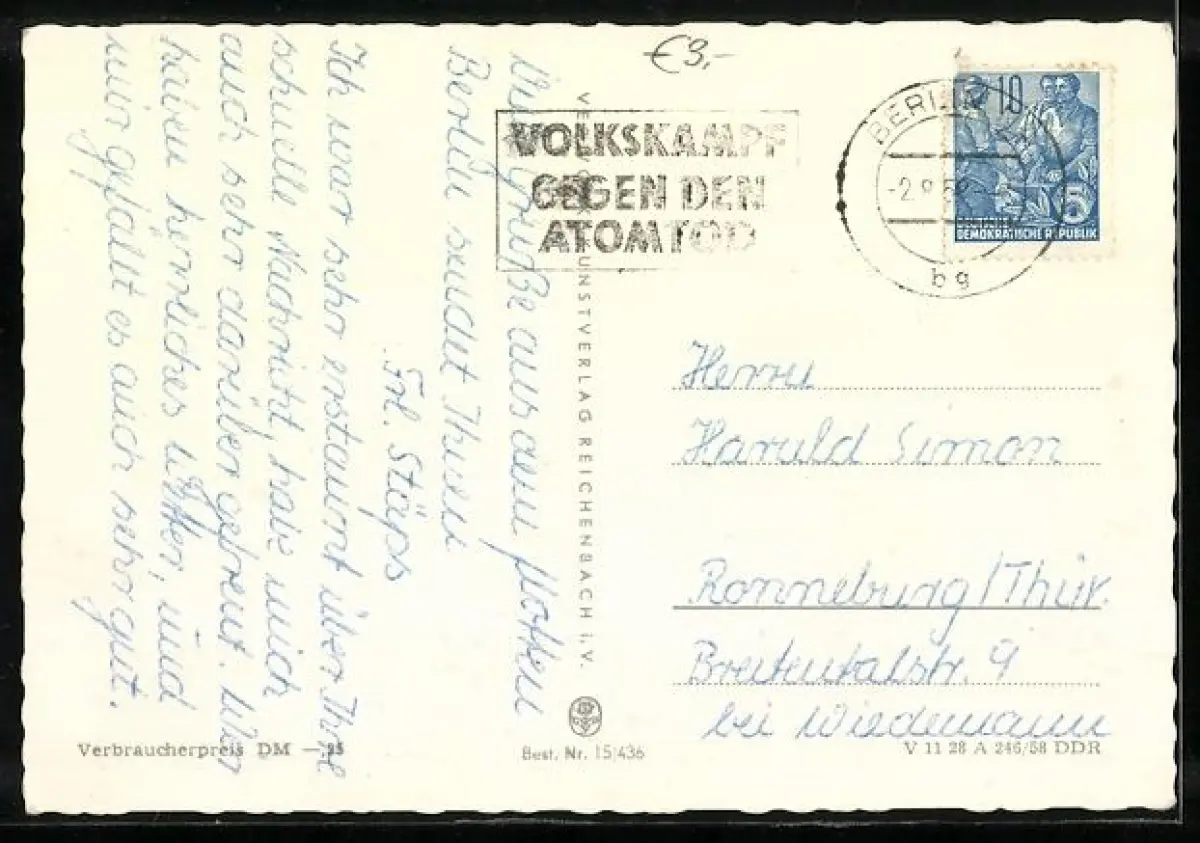 €3,-
Viele Grüße aus dem flotten
Berlin sendet Ihnen
Frl. Stäps
Ich war sehr erstaunt über Ihre
schnelle Nachricht, habe mich
auch sehr darüber gefreut. Wir
haben herrliches Wetter, und
mir gefällt es auch sehr gut.
VOLKSKAMPF
GEGEN DEN
ATOMTOD
BERLIN
bg
10
5
DEMOKRATISCHE REPUBLIK
KUNSTVERLAG REICHENBACH i. V.
Herrn
Harald Simon
Ronneburg/Thür.
Breitentalstr. 9
bei Wiedemann
Verbraucherpreis DM —.25
Best. Nr. 15/436
V 11 28 A 246/58 DDR